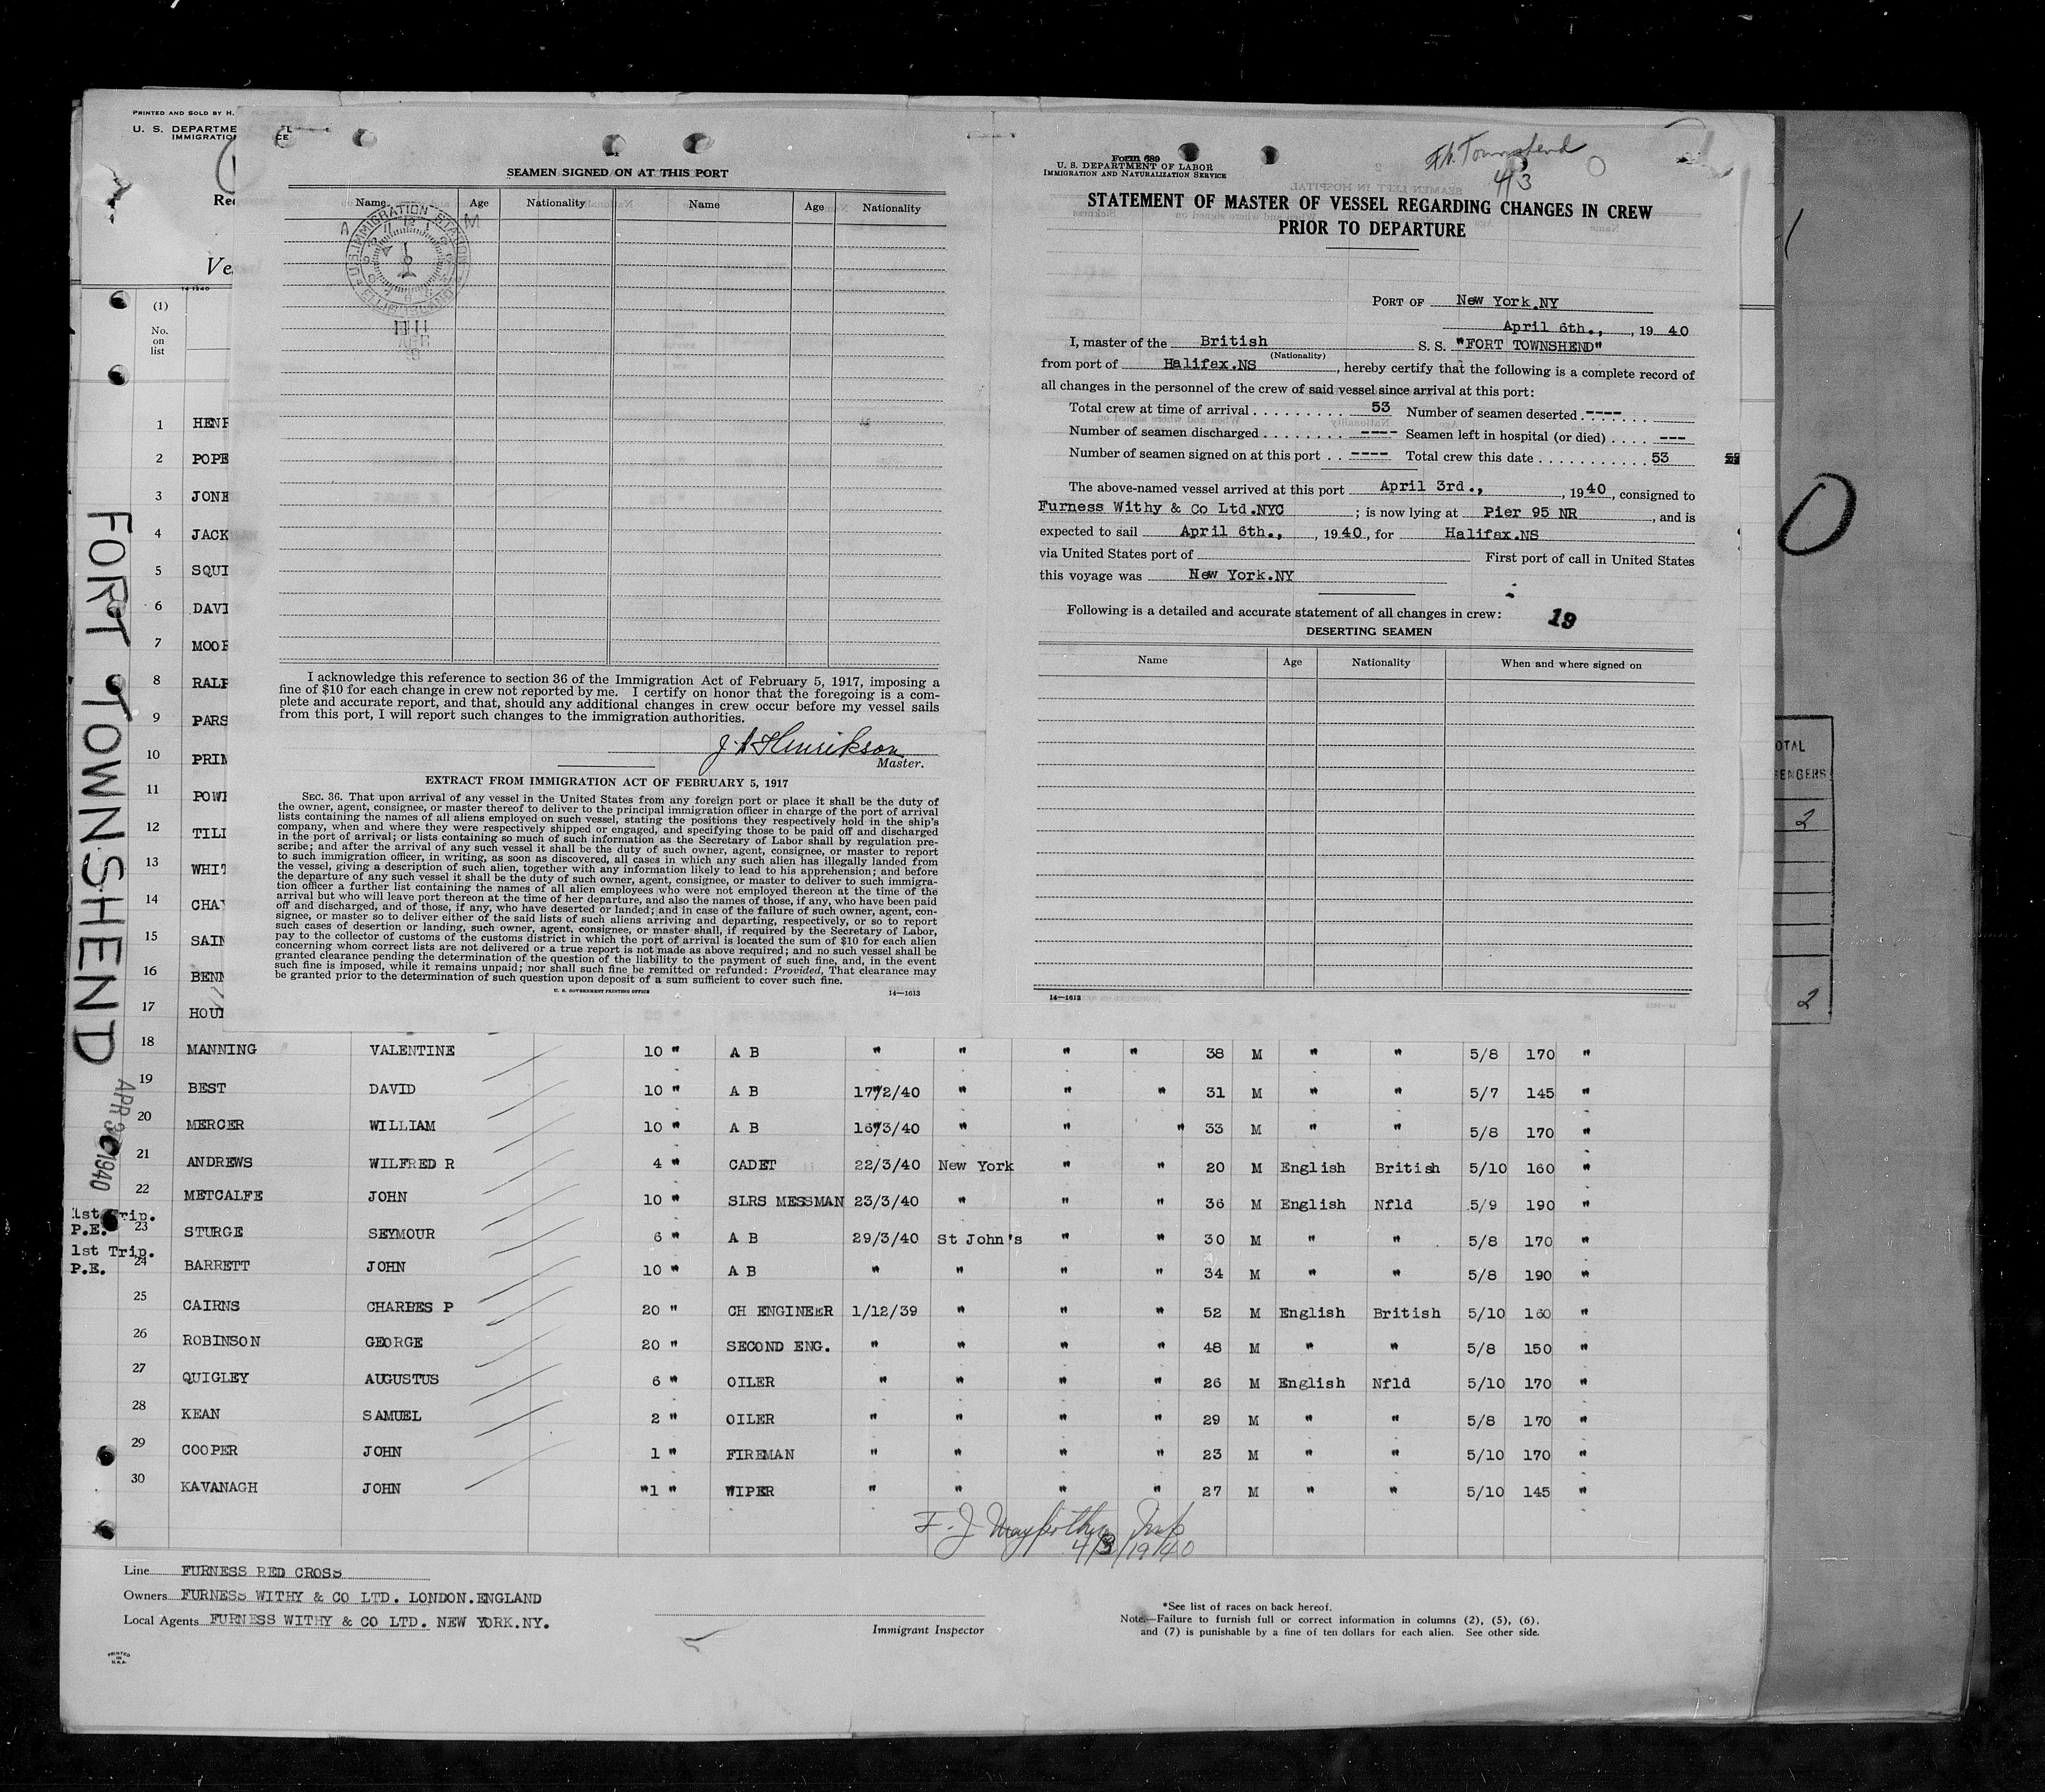 PRINTED AND SOLD BY H.
U. S. DEPARTME
IMMIGRATIO
Rec
Ve
(1)
No.
on
list
1 HENR
2 POPE
3 JONE
4 JACK
5 SQUI
6 DAVI
7 MOOR
8 RALP
9 PARS
10 PRIM
11 POWE
12 TILL
13 WHIT
14 CHA
15 SAIN
16 BENN
17 HOU
FORT TOWNSHEND
APR 3 1940
SEAMEN SIGNED ON AT THIS PORT
Name Age Nationality Name Age Nationality
U.S. IMMIGRATION STATION
ELLIS ISLAND
A M
APR
I acknowledge this reference to section 36 of the Immigration Act of February 5, 1917, imposing a
fine of $10 for each change in crew not reported by me. I certify on honor that the foregoing is a com-
plete and accurate report, and that, should any additional changes in crew occur before my vessel sails
from this port, I will report such changes to the immigration authorities.
Henrikson
Master.
EXTRACT FROM IMMIGRATION ACT OF FEBRUARY 5, 1917
SEC. 36. That upon arrival of any vessel in the United States from any foreign port or place it shall be the duty of
the owner, agent, consignee, or master thereof to deliver to the principal immigration officer in charge of the port of arrival
lists containing the names of all aliens employed on such vessel, stating the positions they respectively hold in the ship's
company, when and where they were respectively shipped or engaged, and specifying those to be paid off and discharged
in the port of arrival; or lists containing so much of such information as the Secretary of Labor shall by regulation pre-
scribe; and after the arrival of any such vessel it shall be the duty of such owner, agent, consignee, or master to report
to such immigration officer, in writing, as soon as discovered, all cases in which any such alien has illegally landed from
the vessel, giving a description of such alien, together with any information likely to lead to his apprehension; and before
the departure of any such vessel it shall be the duty of such owner, agent, consignee, or master to deliver to such immigra-
tion officer a further list containing the names of all alien employees who were not employed thereon at the time of the
arrival but who will leave port thereon at the time of her departure, and also the names of those, if any, who have been paid
off and discharged, and of those, if any, who have deserted or landed; and in case of the failure of such owner, agent, con-
signee, or master so to deliver either of the said lists of such aliens arriving and departing, respectively, or so to report
such cases of desertion or landing, such owner, agent, consignee, or master shall, if required by the Secretary of Labor,
pay to the collector of customs of the customs district in which the port of arrival is located the sum of $10 for each alien
concerning whom correct lists are not delivered or a true report is not made as above required; and no such vessel shall be
granted clearance pending the determination of the question of the liability to the payment of such fine, and, in the event
such fine is imposed, while it remains unpaid; nor shall such fine be remitted or refunded: Provided, That clearance may
be granted prior to the determination of such question upon deposit of a sum sufficient to cover such fine.
U. S. GOVERNMENT PRINTING OFFICE 14—1613
Form 689
U. S. DEPARTMENT OF LABOR
IMMIGRATION AND NATURALIZATION SERVICE
Ft. Townshend
4/3
STATEMENT OF MASTER OF VESSEL REGARDING CHANGES IN CREW
PRIOR TO DEPARTURE
PORT OF New York.NY
April 6th., , 19 40
I, master of the British S. S. "FORT TOWNSHEND"
(Nationality)
from port of Halifax.NS , hereby certify that the following is a complete record of
all changes in the personnel of the crew of said vessel since arrival at this port:
Total crew at time of arrival . . . . . . . . . 53 Number of seamen deserted . ----
Number of seamen discharged . . . . . . . . ---- Seamen left in hospital (or died) . . . . ---
Number of seamen signed on at this port . . ---- Total crew this date . . . . . . . . . . . 53
The above-named vessel arrived at this port April 3rd., , 1940, consigned to
Furness Withy & Co Ltd.NYC ; is now lying at Pier 95 NR , and is
expected to sail April 6th., , 1940, for Halifax.NS
via United States port of First port of call in United States
this voyage was New York.NY
Following is a detailed and accurate statement of all changes in crew: 19
DESERTING SEAMEN
Name Age Nationality When and where signed on
14—1613
0
OTAL
ENGERS
2
2
18 MANNING VALENTINE 10 " A B " " " " 38 M " " 5/8 170 "
19 BEST DAVID 10 " A B 17/2/40 " " " 31 M " " 5/7 145 "
20 MERCER WILLIAM 10 " A B 16/3/40 " " " 33 M " " 5/8 170 "
21 ANDREWS WILFRED R 4 " CADET 22/3/40 New York " " 20 M English British 5/10 160 "
22 METCALFE JOHN 10 " SLRS MESSMAN 23/3/40 " " " 36 M English Nfld 5/9 190 "
1st Trip.
P.E. 23 STURGE SEYMOUR 6 " A B 29/3/40 St John's " " 30 M " " 5/8 170 "
1st Trip.
P.E. 24 BARRETT JOHN 10 " A B " " " " 34 M " " 5/8 190 "
25 CAIRNS CHARBES P 20 " CH ENGINEER 1/12/39 " " " 52 M English British 5/10 160 "
26 ROBINSON GEORGE 20 " SECOND ENG. " " " " 48 M " " 5/8 150 "
27 QUIGLEY AUGUSTUS 6 " OILER " " " " 26 M English Nfld 5/10 170 "
28 KEAN SAMUEL 2 " OILER " " " " 29 M " " 5/8 170 "
29 COOPER JOHN 1 " FIREMAN " " " " 23 M " " 5/10 170 "
30 KAVANAGH JOHN "1 " WIPER " " " " 27 M " " 5/10 145 "
F. J. Insp
4/3/1940
Line FURNESS RED CROSS
Owners FURNESS WITHY & CO LTD. LONDON.ENGLAND
Local Agents FURNESS WITHY & CO LTD. NEW YORK.NY.
Immigrant Inspector
*See list of races on back hereof.
Note.—Failure to furnish full or correct information in columns (2), (5), (6),
and (7) is punishable by a fine of ten dollars for each alien. See other side.
PRINTED
IN
U.S.A.